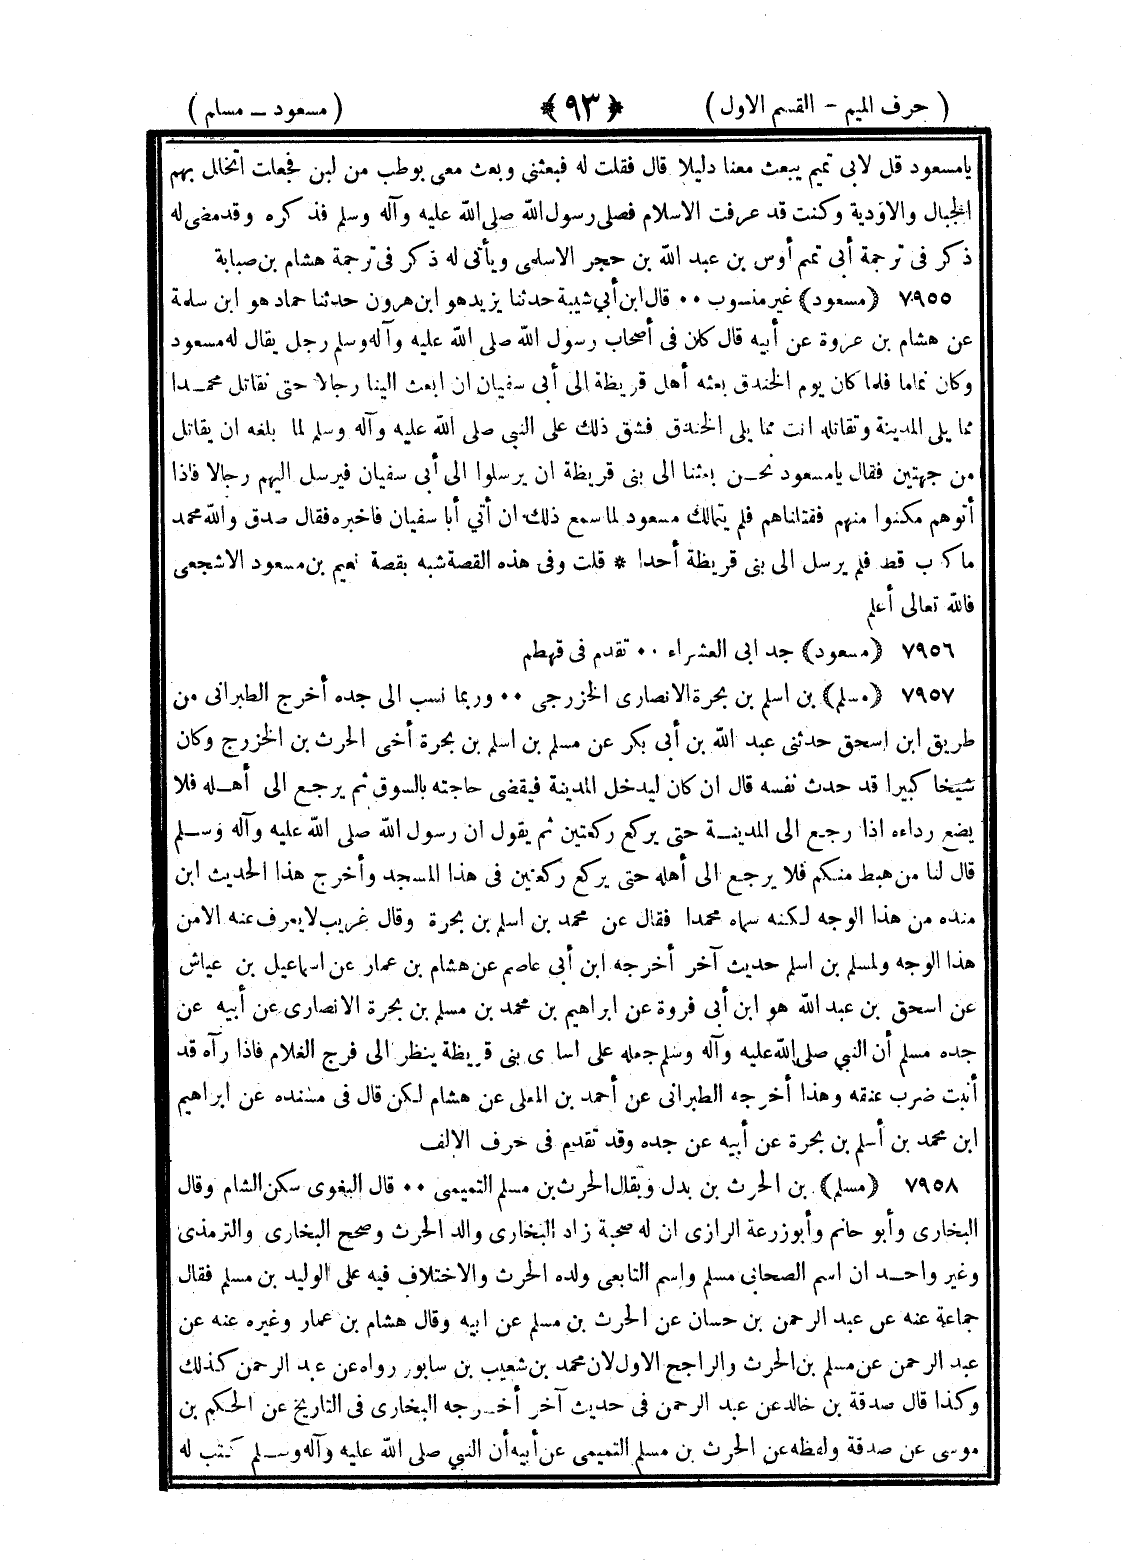 ( حرف الميم - القسم الاول ) ﴿ ٩٣ ﴾ ( مسعود ــ مسلم )
يامسعود قل لابى تميم يبعث معنا دليلا قال فقلت له فبعثنى وبعث معى بوطب من لبن فجعلت اتخلل بهم
الجبال والاودية وكنت قد عرفت الاسلام فصلى رسول الله صلى الله عليه وآله وسلم فذكره وقد مضى له
ذكر فى ترجمة أبى تميم أوس بن عبد الله بن حجر الاسلمى ويأتى له ذكر فى ترجمة هشام بن صبابة
٧٩٥٥ ﴿مسعود﴾ غير منسوب ٠٠ قال ابن أبي شيبة حدثنا يزيد هو ابن هرون حدثنا حماد هو ابن سلمة
عن هشام بن عروة عن أبيه قال كان فى أصحاب رسول الله صلى الله عليه وآله وسلم رجل يقال له مسعود
وكان نماما فلما كان يوم الخندق بعثه أهل قريظة الى أبى سفيان ان ابعث الينا رجالا حتى نقاتل محمـدا
مما يلى المدينة وتقاتله انت مما يلى الخندق فشق ذلك على النبي صلى الله عليه وآله وسلم لما بلغه ان يقاتل
من جهتين فقال يامسعود نحـن بعثنا الى بنى قريظة ان يرسلوا الى أبى سفيان فيرسل اليهم رجالا فاذا
أتوهم مكنوا منهم فقتلناهم فلم يتمالك مسعود لما سمع ذلك ان أتي أبا سفيان فاخبره فقال صدق والله محمد
ما كذب قط فلم يرسل الى بنى قريظة أحدا * قلت وفى هذه القصة شبه بقصة نعيم بن مسعود الاشجعى
فالله تعالى أعلم
٧٩٥٦ ﴿مسعود﴾ جد ابى العشراء ٠٠ تقدم فى قهطم
٧٩٥٧ ﴿مسلم﴾ بن اسلم بن بجرة الانصارى الخزرجى ٠٠ وربما نسب الى جده أخرج الطبرانى من
طريق ابن اسحق حدثنى عبد الله بن أبي بكر عن مسلم بن اسلم بن بجرة أخى الحرث بن الخزرج وكان
شيخا كبيرا قد حدث نفسه قال ان كان ليدخل المدينة فيقضى حاجته بالسوق ثم يرجع الى أهـله فلا
يضع رداءه اذا رجع الى المدينـة حتى يركع ركعتين ثم يقول ان رسول الله صلى الله عليه وآله وسـلم
قال لنا من هبط منكم فلا يرجع الى أهله حتى يركع ركعتين فى هذا المسجد وأخرج هذا الحديث ابن
منده من هذا الوجه لكنه سماه محمدا فقال عن محمد بن اسلم بن بجرة وقال غريب لا يعرف عنه الا من
هذا الوجه ولمسلم بن اسلم حديث آخر أخرجه ابن أبي عاصم عن هشام بن عمار عن اسماعيل بن عياش
عن اسحق بن عبد الله هو ابن أبى فروة عن ابراهيم بن محمد بن مسلم بن بجرة الانصارى عن أبيه عن
جده مسلم أن النبي صلى الله عليه وآله وسلم جعله على اسارى بنى قريظة ينظر الى فرج الغلام فاذا رآه قد
أنبت ضرب عنقه وهذا أخرجه الطبرانى عن أحمد بن المعلى عن هشام لكن قال فى مسنده عن ابراهيم
ابن محمد بن أسلم بن بجرة عن أبيه عن جده وقد تقدم فى حرف الالف
٧٩٥٨ ﴿مسلم﴾ بن الحرث بن بدل ويقال الحرث بن مسلم التميمى ٠٠ قال البغوى سكن الشام وقال
البخارى وأبو حاتم وأبو زرعة الرازى ان له صحبة زاد البخارى والد الحرث وصحح البخارى والترمذى
وغير واحـد ان اسم الصحابى مسلم واسم التابعى ولده الحرث والاختلاف فيه على الوليد بن مسلم فقال
جماعة عنه عن عبد الرحمن بن حسان عن الحرث بن مسلم عن ابيه وقال هشام بن عمار وغيره عنه عن
عبد الرحمن عن مسلم بن الحرث والراجح الاول لان محمد بن شعيب بن سابور رواه عن عبد الرحمن كذلك
وكذا قال صدقة بن خالد عن عبد الرحمن فى حديث آخر أخـرجه البخارى فى التاريخ عن الحكم بن
موسى عن صدقة ولفظه عن الحرث بن مسلم التميمى عن أبيه أن النبي صلى الله عليه وآله وسـلم كتب له